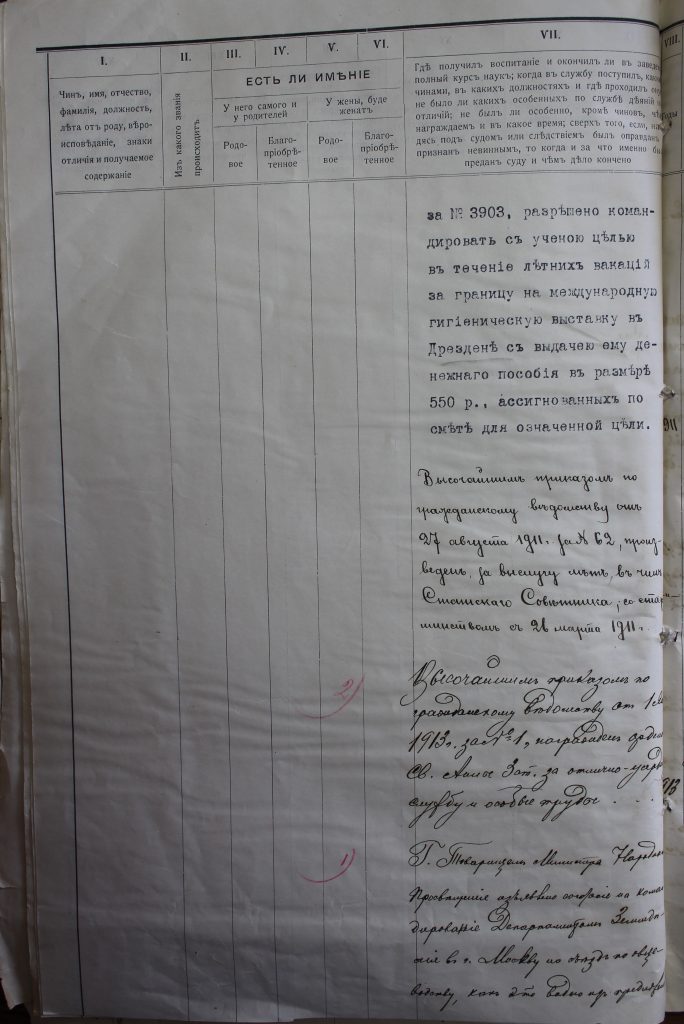 I.
II.
III.
IV.
V.
VI.
VII.
VIII.
Чинъ, имя, отчество,
фамилія, должность,
лѣта отъ роду, вѣро-
исповѣданіе, знаки
отличія и получаемое
содержаніе
Изъ какого званія
происходитъ
ЕСТЬ ЛИ ИМѢНІЕ
У него самого и
у родителей
У жены, буде
женатъ
Родо-
вое
Благо-
пріобрѣ-
тенное
Родо-
вое
Благо-
пріобрѣ-
тенное
Гдѣ получилъ воспитаніе и окончилъ ли въ заведе
полный курсъ наукъ; когда въ службу поступилъ, каки
чинами, въ какихъ должностяхъ и гдѣ проходилъ
не было ли какихъ особенныхъ по службѣ дѣяній
отличій; не былъ ли особенно, кромѣ чиновъ, чѣ
награждаемъ и въ какое время; сверхъ того, если, на
дясь подъ судомъ или слѣдствіемъ былъ оправданъ
признанъ невиннымъ, то когда и за что именно бы
преданъ суду и чѣмъ дѣло кончено
за № 3903, разрѣшено коман-
дировать съ ученою цѣлью
въ теченіе лѣтнихъ вакацій
за границу на международную
гигіеническую выставку въ
Дрезденѣ съ выдачею ему де-
нежнаго пособія въ размѣрѣ
550 р., ассигнованныхъ по
смѣтѣ для означенной цѣли.
911
Высочайшимъ приказомъ по
гражданскому вѣдомству отъ
27 августа 1911 г. за № 62, произ-
веденъ, за выслугу лѣтъ, въ чинъ
Статскаго Совѣтника, со стар
шинствомъ съ 26 марта 1911 г.
2)
Высочайшимъ приказомъ по
гражданскому Вѣдомству отъ 1
1913 г. за № 1, награжденъ орден
Св. Анны 3 ст. за отлично-усерд
службу и особые труды . . .
913
1)
Г. Товарищемъ Министра Народн
Просвѣщенія изъявлено согласіе на коман
дированіе Департаментомъ Земледѣ-
лія въ г. Москву на съѣздъ по овце-
водству, какъ это видно изъ предлож